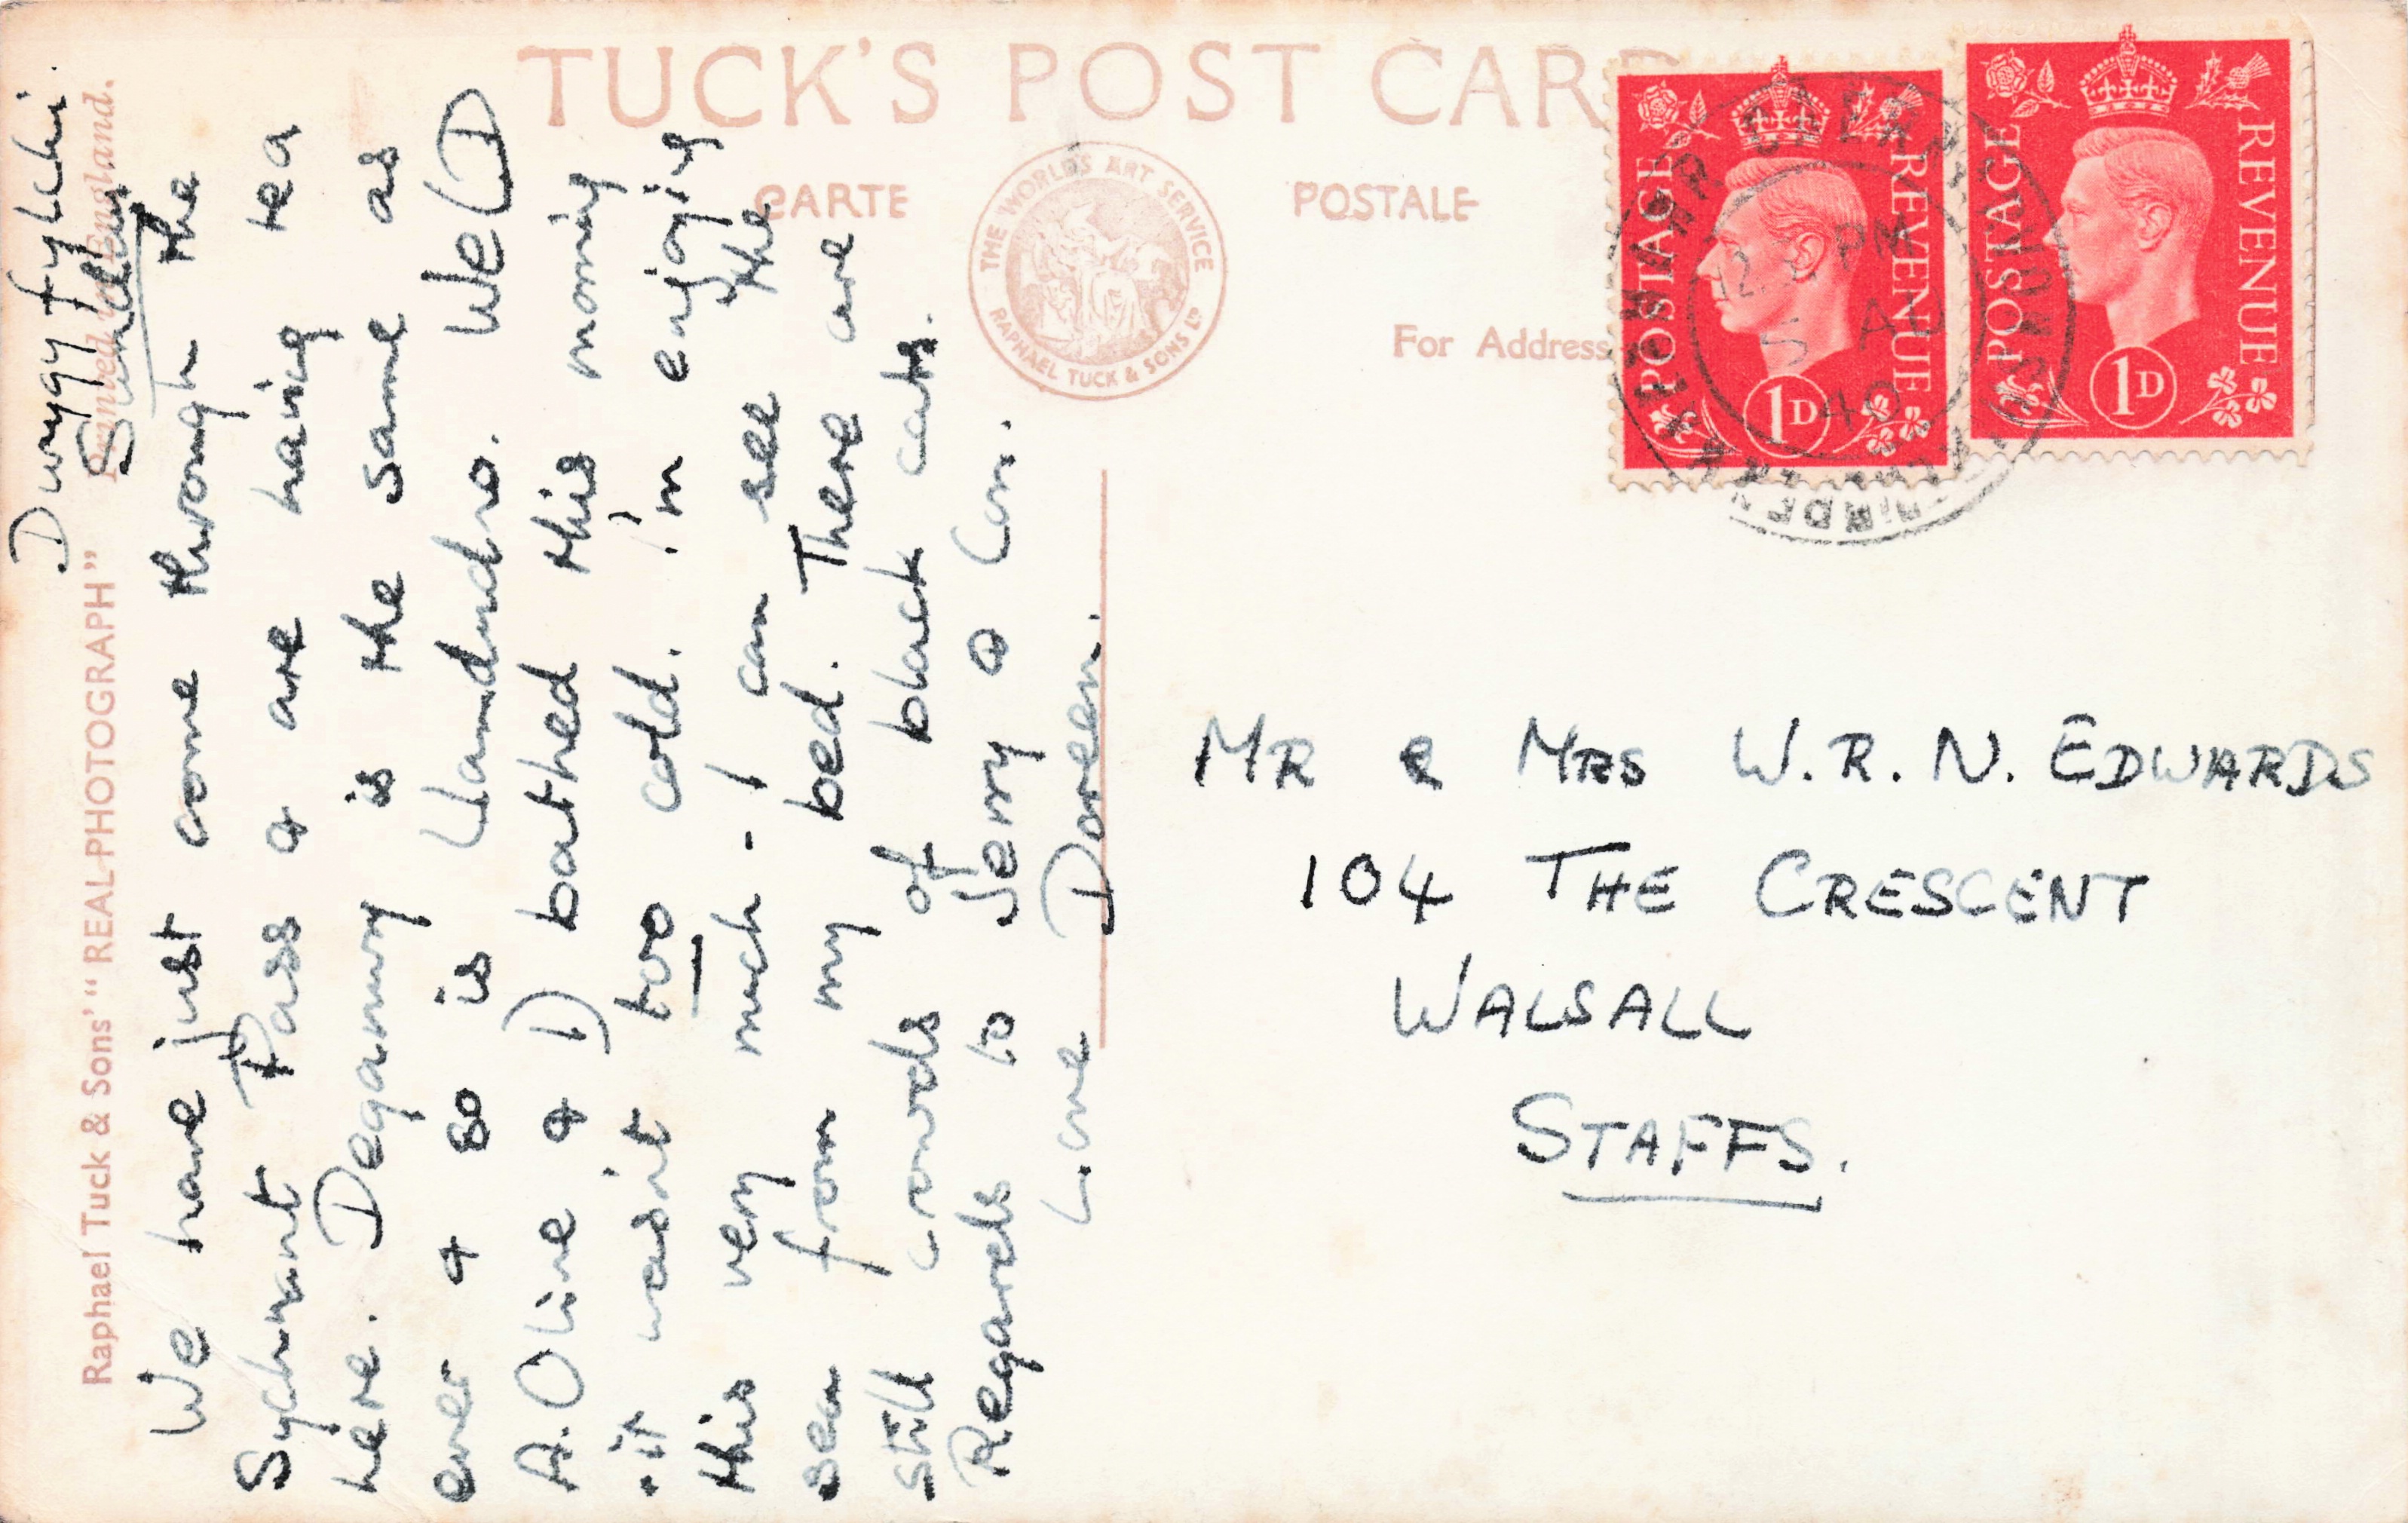 TUCK'S POST CARD
CARTE POSTALE
THE WORLD'S ART SERVICE
RAPHAEL TUCK & SONS LD
For Address
POSTAGE REVENUE
1D
POSTAGE REVENUE
1D
PM
5 AU
40
Raphael Tuck & Sons' "REAL PHOTOGRAPH"
Printed in England.
Dwygyfylchi.
Sunday
We have just come through the
Sychnant Pass & are having tea
here. Deganwy is the same as
ever & so is Llandudno. We (D
A. Olive & D) bathed this morning
it wasn't too cold. I'm enjoying
this very much - I can see the
sea from my bed. There are
still crowds of black cats.
Regards to Jerry & Con.
Love Doreen.
MR & MRS W.R.N. EDWARDS
104 THE CRESCENT
WALSALL
STAFFS.